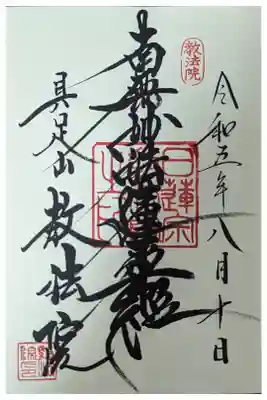 教法院
令和五年八月十日
南無妙法蓮華経
具足山 教法院